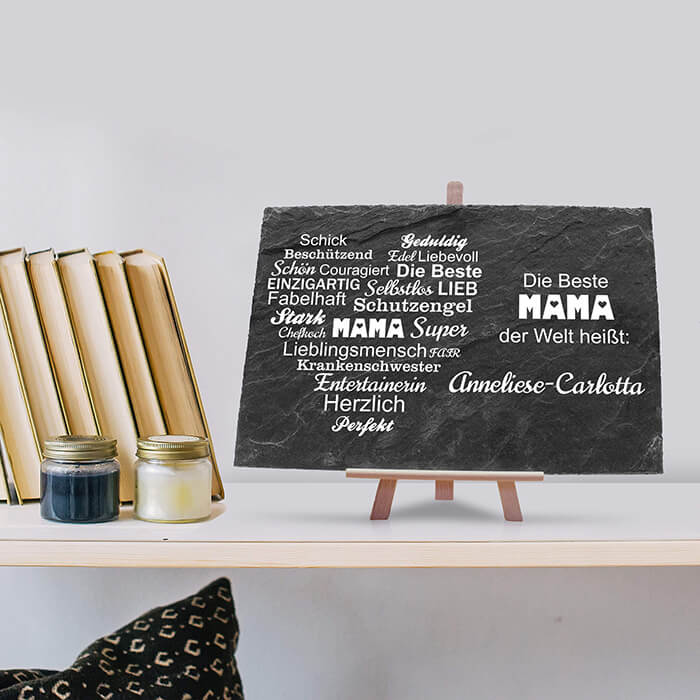 Schick Geduldig
Beschützend Edel Liebevoll
Schön Couragiert Die Beste
EINZIGARTIG Selbstlos LIEB
Fabelhaft Schutzengel
Stark
Chefkoch MAMA Super
Lieblingsmensch FAIR
Krankenschwester
Entertainerin
Herzlich
Perfekt
Die Beste
MAMA
der Welt heißt:
Anneliese-Carlotta